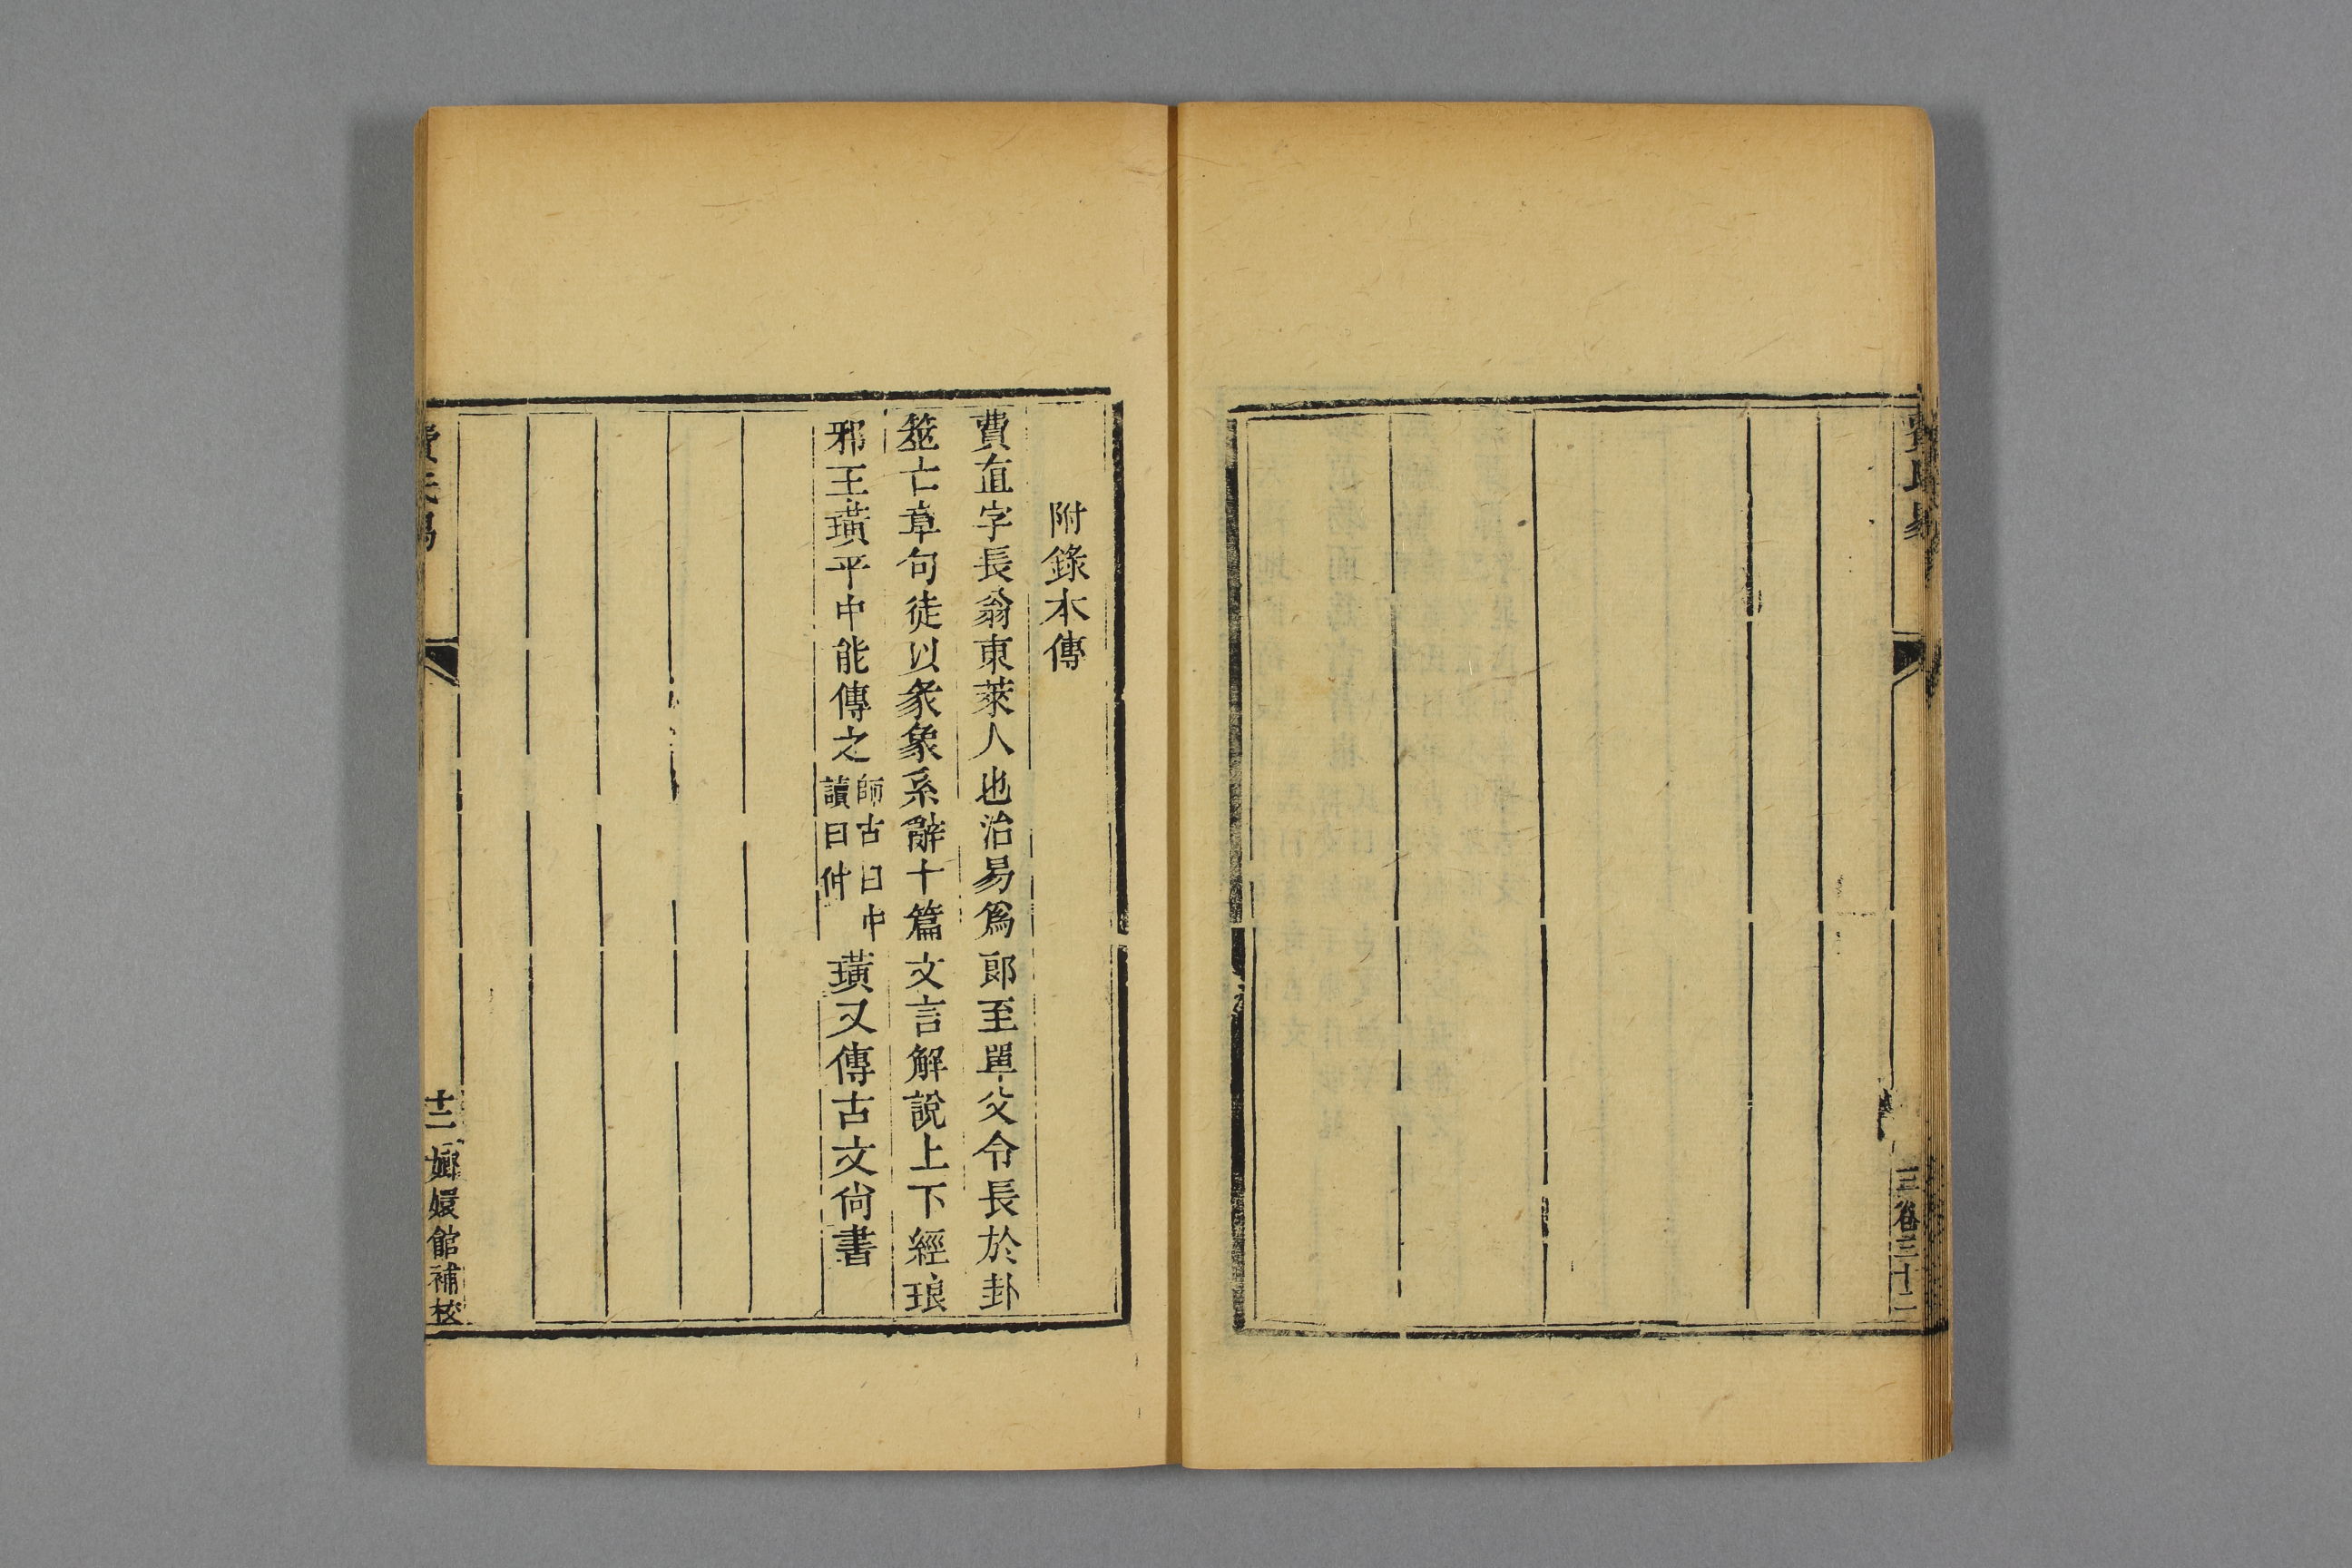 費氏易
三卷三十二
附錄本傳
費直字長翁東萊人也治易為郎至單父令長於卦
筮亡章句徒以彖象系辭十篇文言解說上下經琅
邪王璜平中能傳之師古曰中讀曰仲璜又傳古文尙書
費氏易
嫏嬛館補校